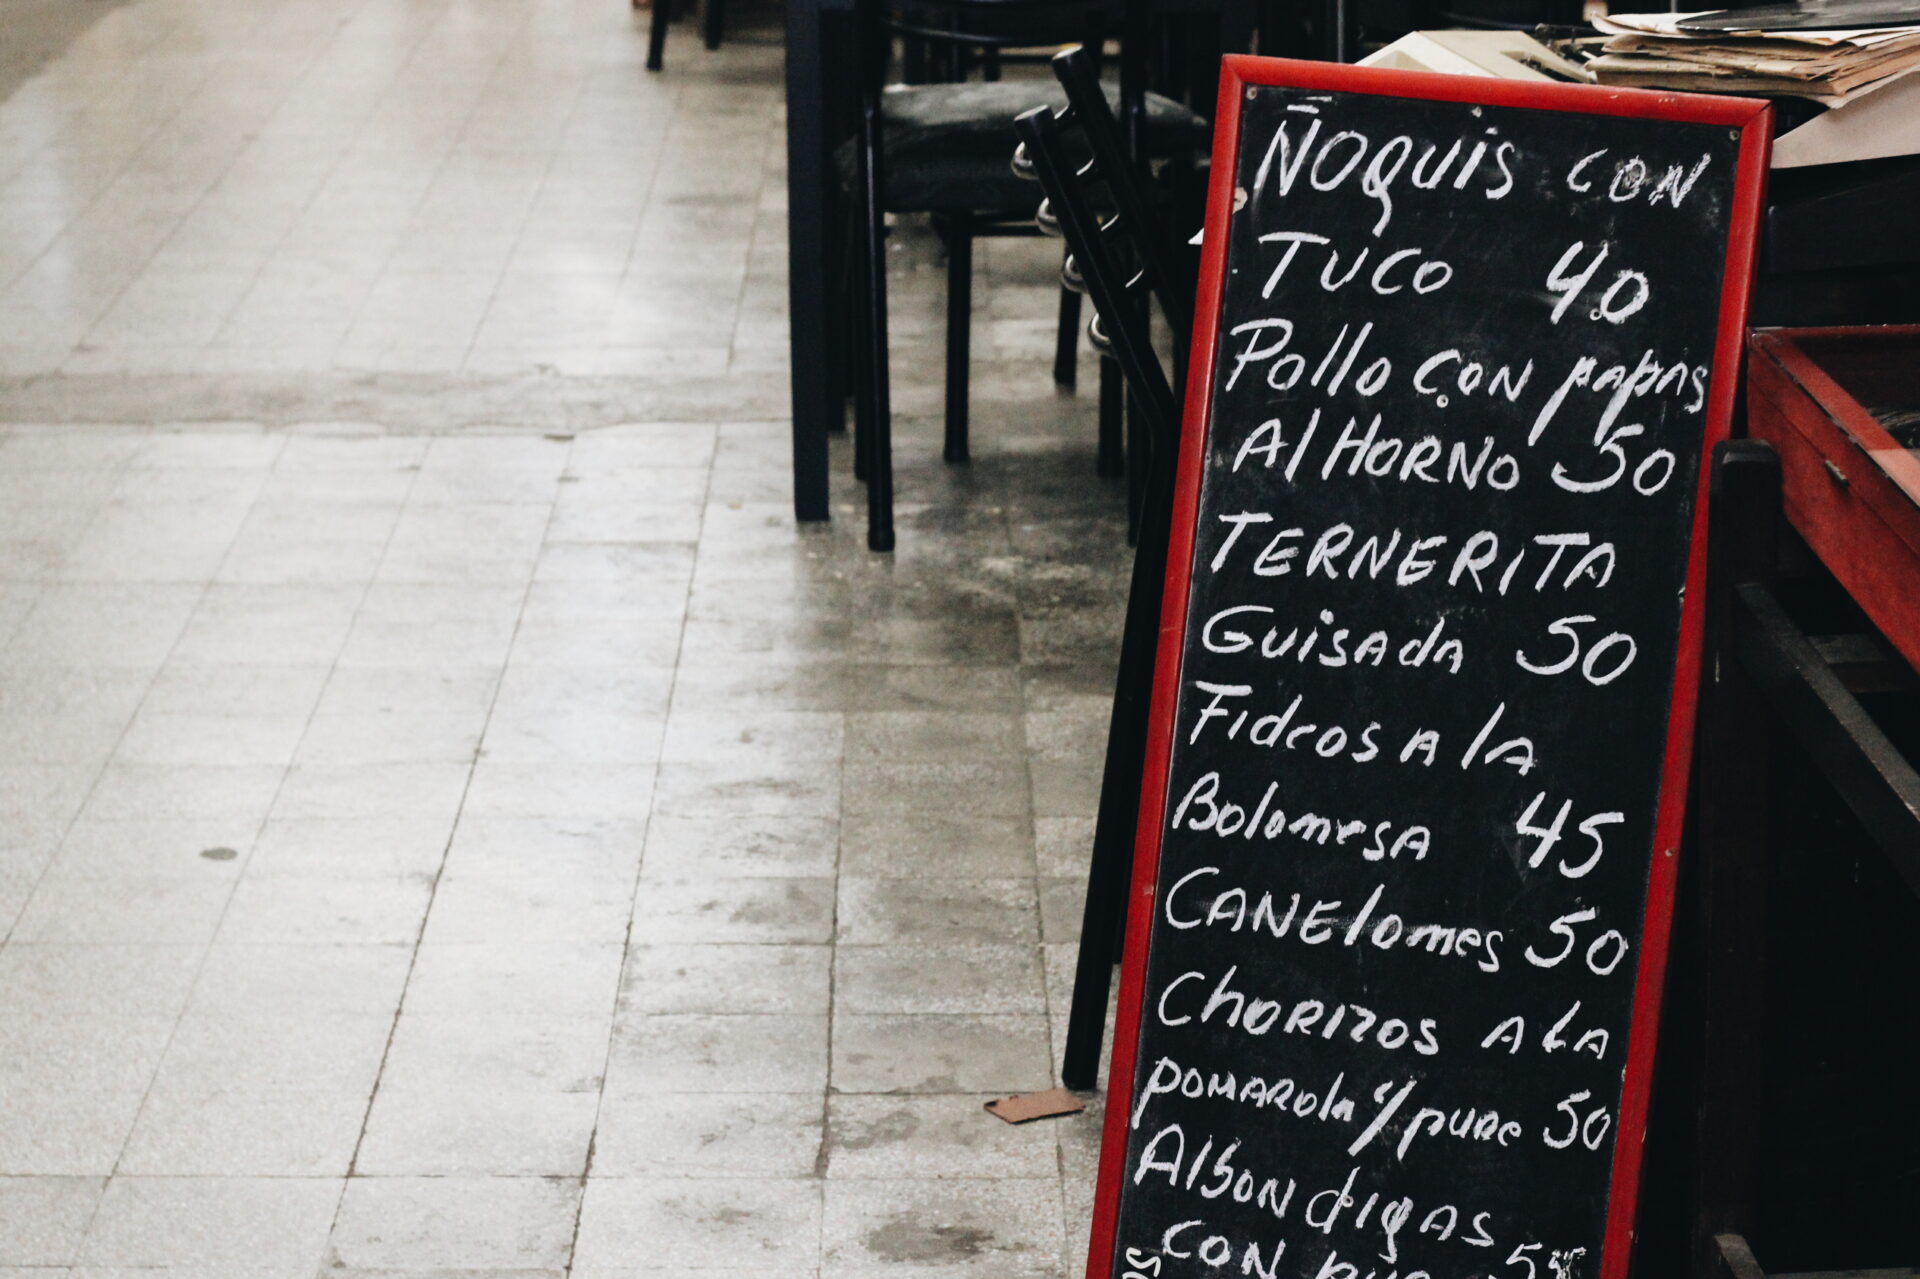 ÑOQUIS CON
TUCO 40
Pollo CON papas
Al HORNO 50
TERNERITA
GUISADA 50
Fideos A lA
BolomesA 45
CANElomes 50
ChORIZOS A LA
POMAROlA y pure 50
AlbONdigAS
CON